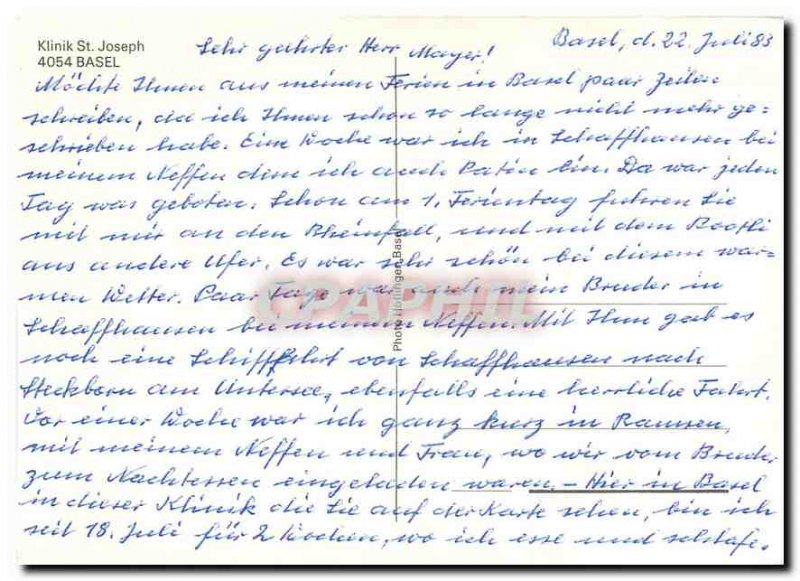 Klinik St. Joseph
4054 BASEL
Basel, d. 22. Juli 83
Sehr geehrter Herr Mayer!
Möchte Ihnen aus meinen Ferien in Basel paar Zeilen
schreiben, da ich Ihnen schon so lange nicht mehr ge=
schrieben habe. Eine Woche war ich in Schaffhausen bei
meinem Neffen dem ich auch Patin bin. Da war jeden
Tag was geboten. Schon am 1. Ferientag fuhren Sie
mit mir an den Rheinfall, und mit dem Bootli
ans andere Ufer. Es war sehr schön bei diesem war=
men Wetter. Paar Tage war auch mein Bruder in
Schaffhausen bei meinem Neffen. Mit Ihm gab es
noch eine Schifffahrt von Schaffhausen nach
Steckborn am Untersee, ebenfalls eine herrliche Fahrt.
Vor einer Woche war ich ganz kurz in Ramsen,
mit meinem Neffen und Frau, wo wir vom Bruder
zum Nachtessen eingeladen waren. – Hier in Basel
in dieser Klinik die Sie auf der Karte sehen, bin ich
seit 18. Juli für 2 Wochen, wo ich esse und schlafe.
Photo Höflinger, Basel
CPAPHIL